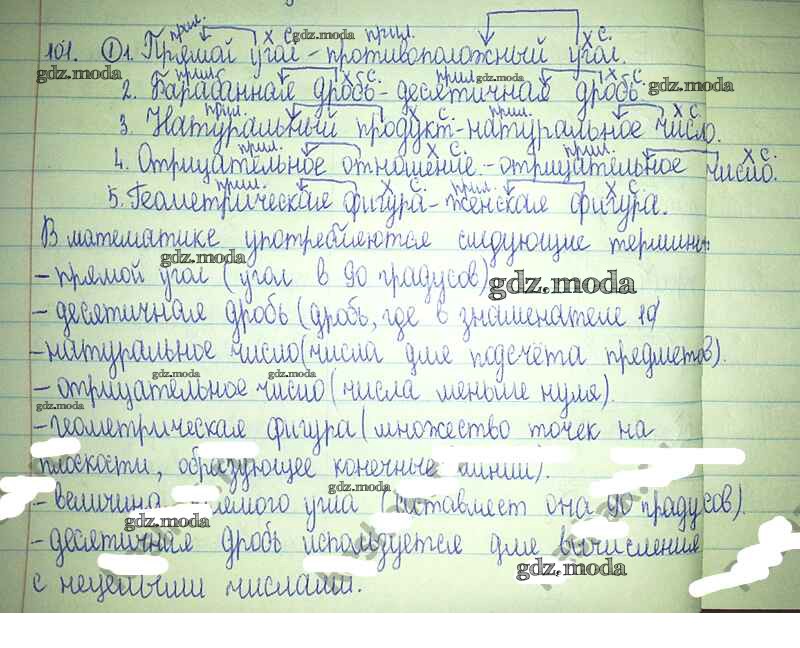 101. ① 1. Прямой угол - противоположный угол.
2. Барабанная дробь - десятичная дробь.
3. Натуральный продукт - натуральное число.
4. Отрицательное отношение - отрицательное число.
5. Геометрическая фигура - женская фигура.
В математике употребляются следующие термины:
- прямой угол (угол в 90 градусов)
- десятичная дробь (дробь, где в знаменателе 10)
- натуральное число (числа для подсчёта предметов).
- отрицательное число (числа меньше нуля).
- геометрическая фигура (множество точек на
плоскости, образующее конечные линии).
- величина прямого угла (составляет она 90 градусов).
- десятичная дробь используется для вычисления
с нецелыми числами.
gdz.moda